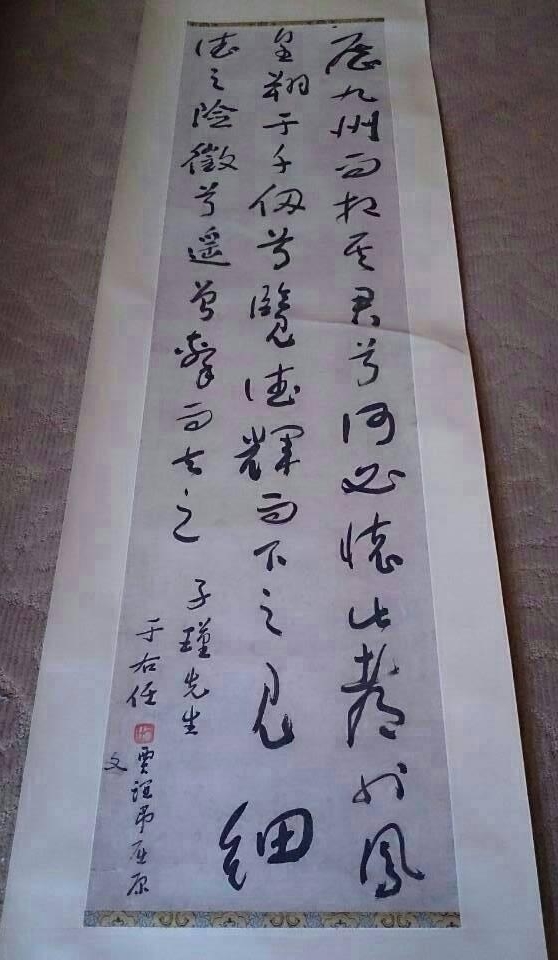 歷九州而相其君兮何必懷此都也鳳
皇翔于千仞兮覽德輝而下之見細
德之險徵兮遥曾擊而去之
子瑾先生
于右任
賈誼吊屈原
文